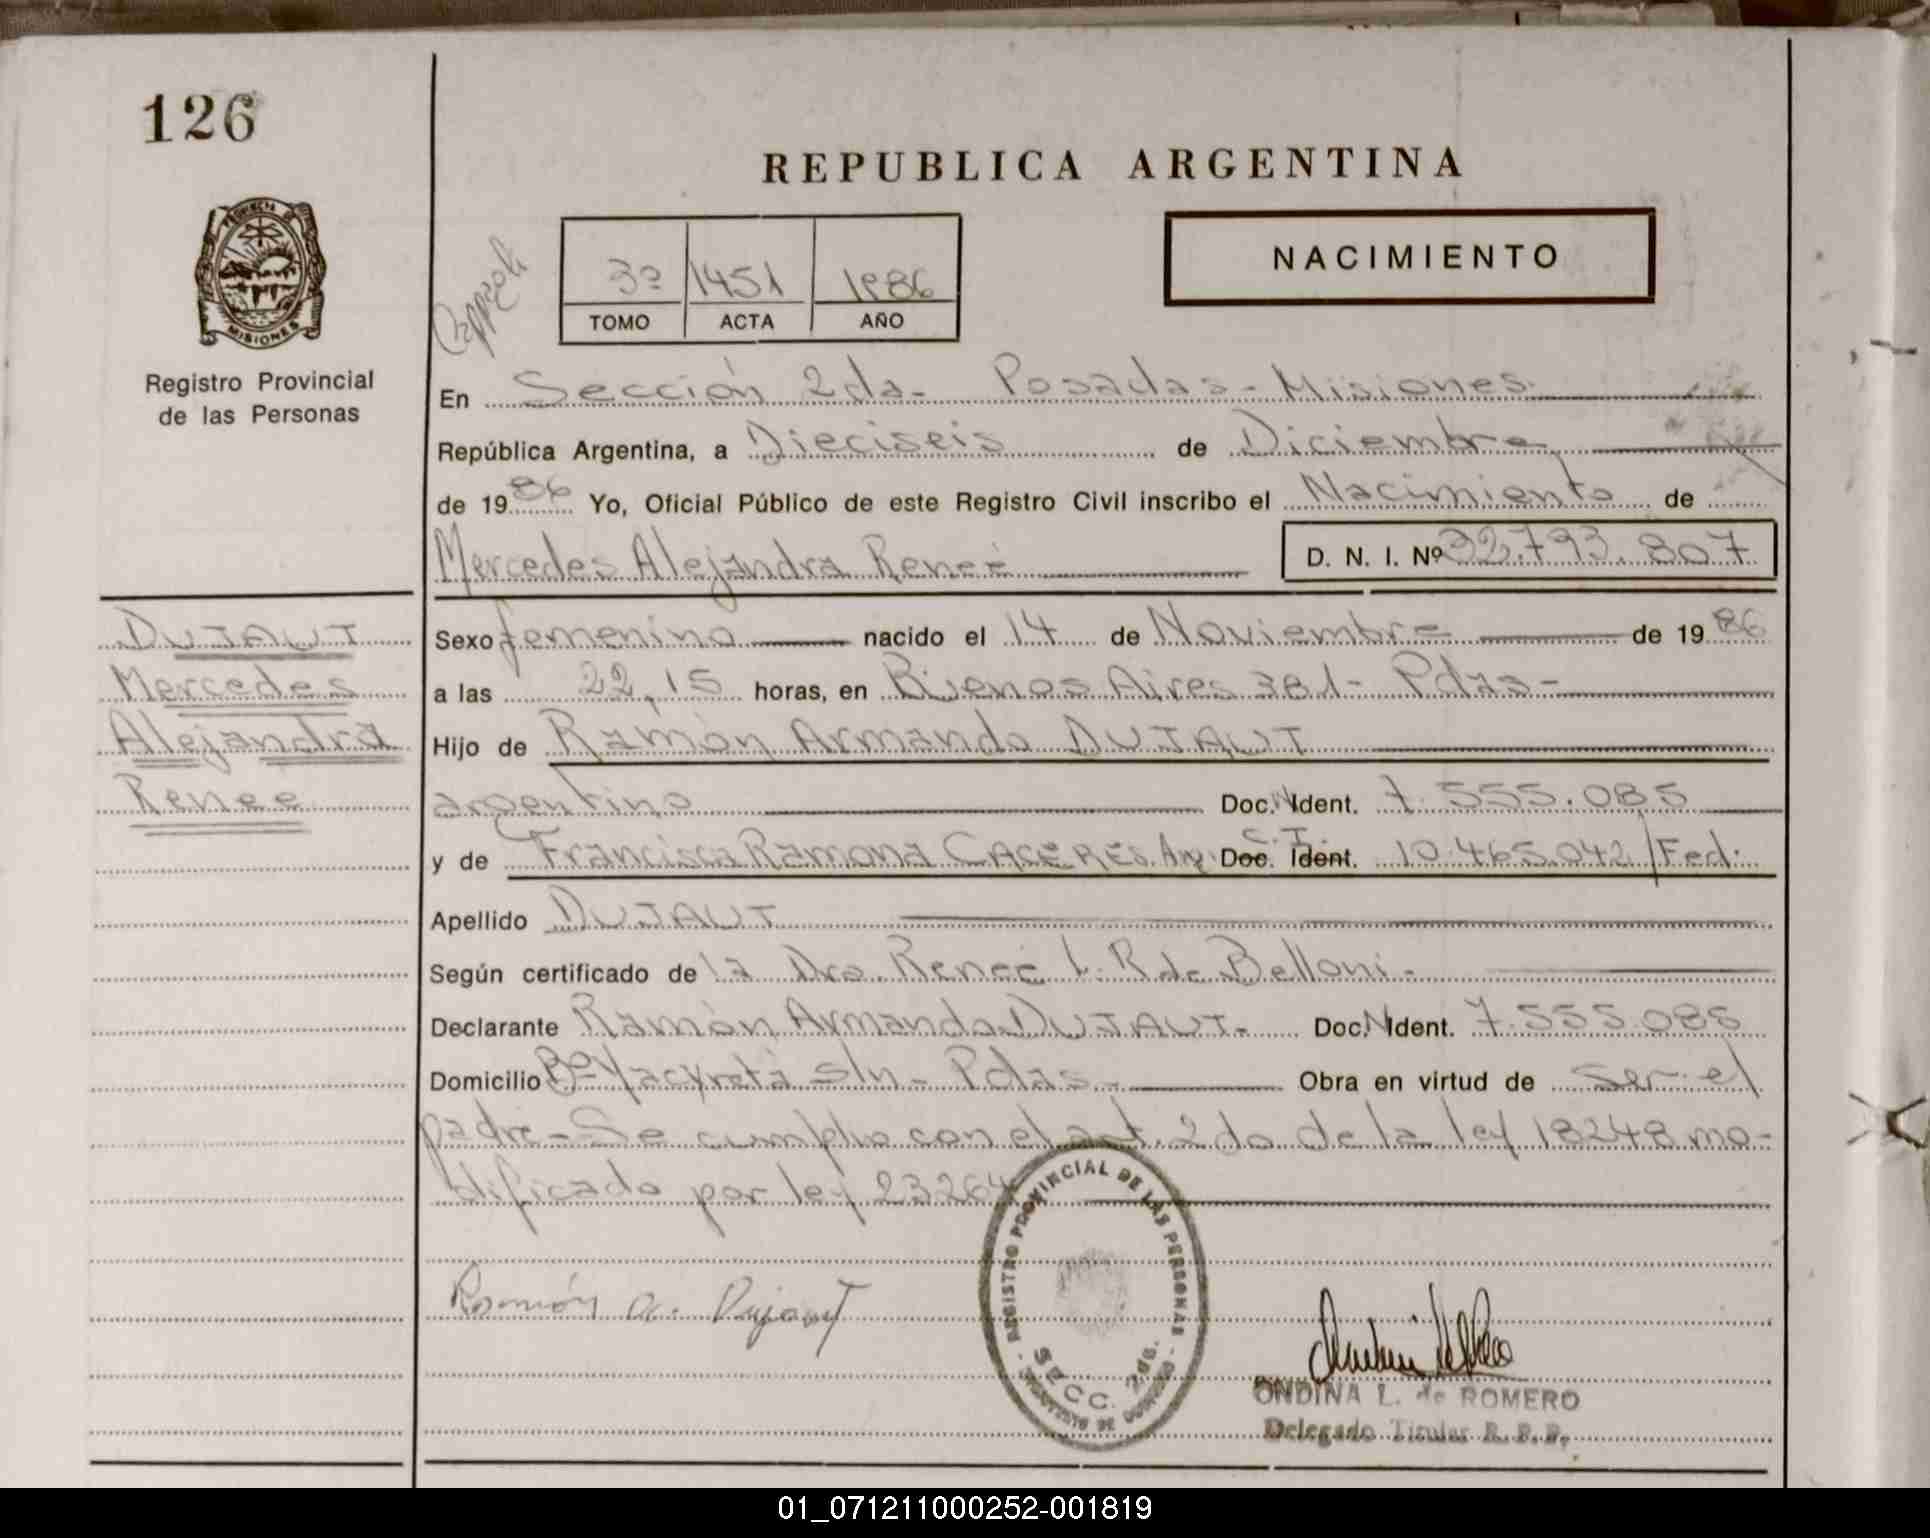 126
REPUBLICA ARGENTINA
PROVINCIA DE
MISIONES
Registro Provincial
de las Personas
3º 1451 1986
TOMO ACTA AÑO
NACIMIENTO
En Sección 2da- Posadas-Misiones
República Argentina, a Dieciseis de Diciembre
de 1986 Yo, Oficial Público de este Registro Civil inscribo el Nacimiento de
Mercedes Alejandra Reneé D. N. I. Nº 32.793.807
DUJAUT
Mercedes
Alejandra
Renee
Sexo femenino nacido el 14 de Noviembre de 1986
a las 22,15 horas, en Buenos Aires 381- Pdas-
Hijo de Ramón Armando DUJAUT
argentino Doc. Ident. 7.555.085
y de Francisca Ramona CACERES Arg. C.I. Doc. Ident. 10.465.042/Fed.
Apellido DUJAUT
Según certificado de la Dra. Reneé L. R de Belloni-
Declarante Ramón Armando DUJAUT- Doc. Ident. 7.555.085
Domicilio Bº Yacyretá s/n- Pdas- Obra en virtud de ser el
padre- Se cumplio con el art. 2do de la ley 18248 mo-
dificado por ley 23264
Ramón A. Dujaut
REGISTRO PROVINCIAL DE LAS PERSONAS
SECC. 2da.
ONDINA L. de ROMERO
Delegado Titular R. P. P.
01_071211000252-001819